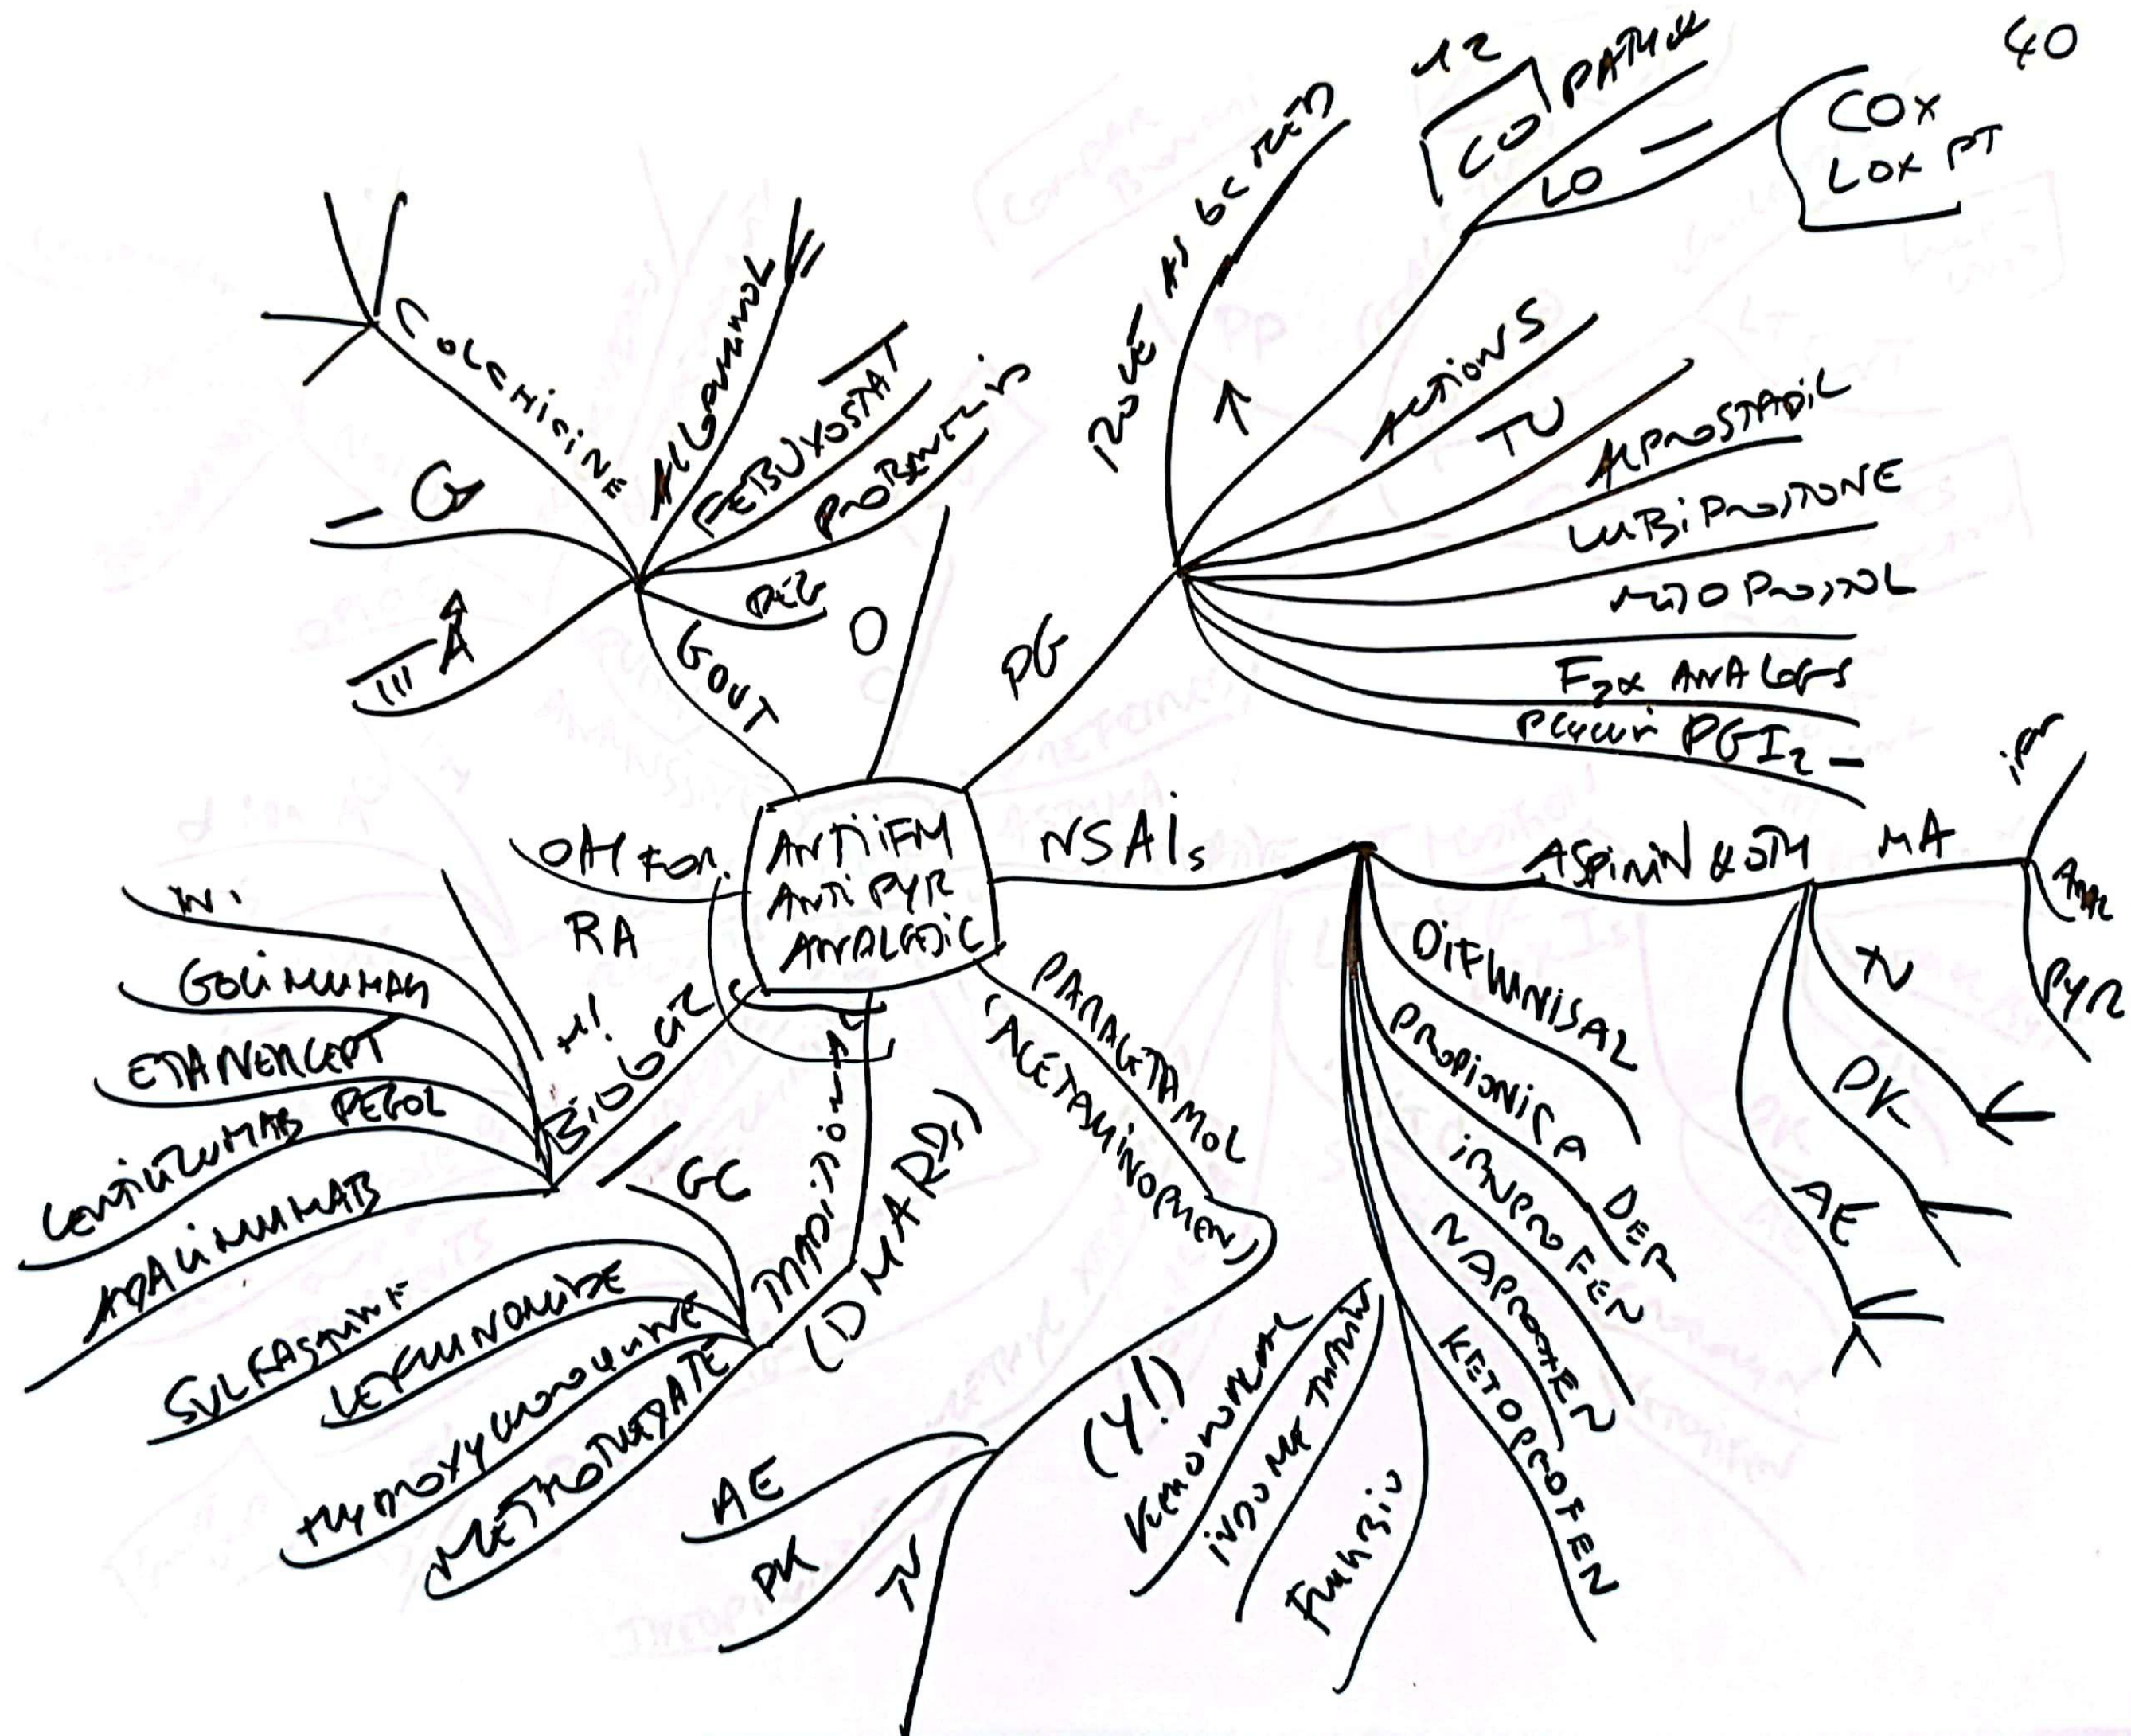 40
12
CO PATH
LO –
COX
LOX PT
ACTIONS
TU
ALPROSTADIL
LUBIPROSTONE
F2α ANALOGS
PGI2 –
PG
O
COLCHICINE
ALLOPURINOL
FEBUXOSTAT
PROBENECID
PEG
– G
GOUT
ANTIIFM
ANTIPYR
ANALGESIC
NSAIs
ASPIRIN & OTH
MA
PYR
TU
PK
AE
DIFLUNISAL
PROPIONIC A DER
IBUPROFEN
NAPROXEN
KETOPROFEN
FLURBIO
INDOMETHACIN
PARACETAMOL
(ACETAMINOPHEN)
(Y!)
AE
PK
TU
RA
BIOLOGIC
GOLIMUMAB
ETANERCEPT
CERTOLIZUMAB PEGOL
ADALIMUMAB
(DMARDs)
GC
SULFASALAZINE
LEFLUNOMIDE
HYDROXYCHLOROQUINE
METHOTREXATE